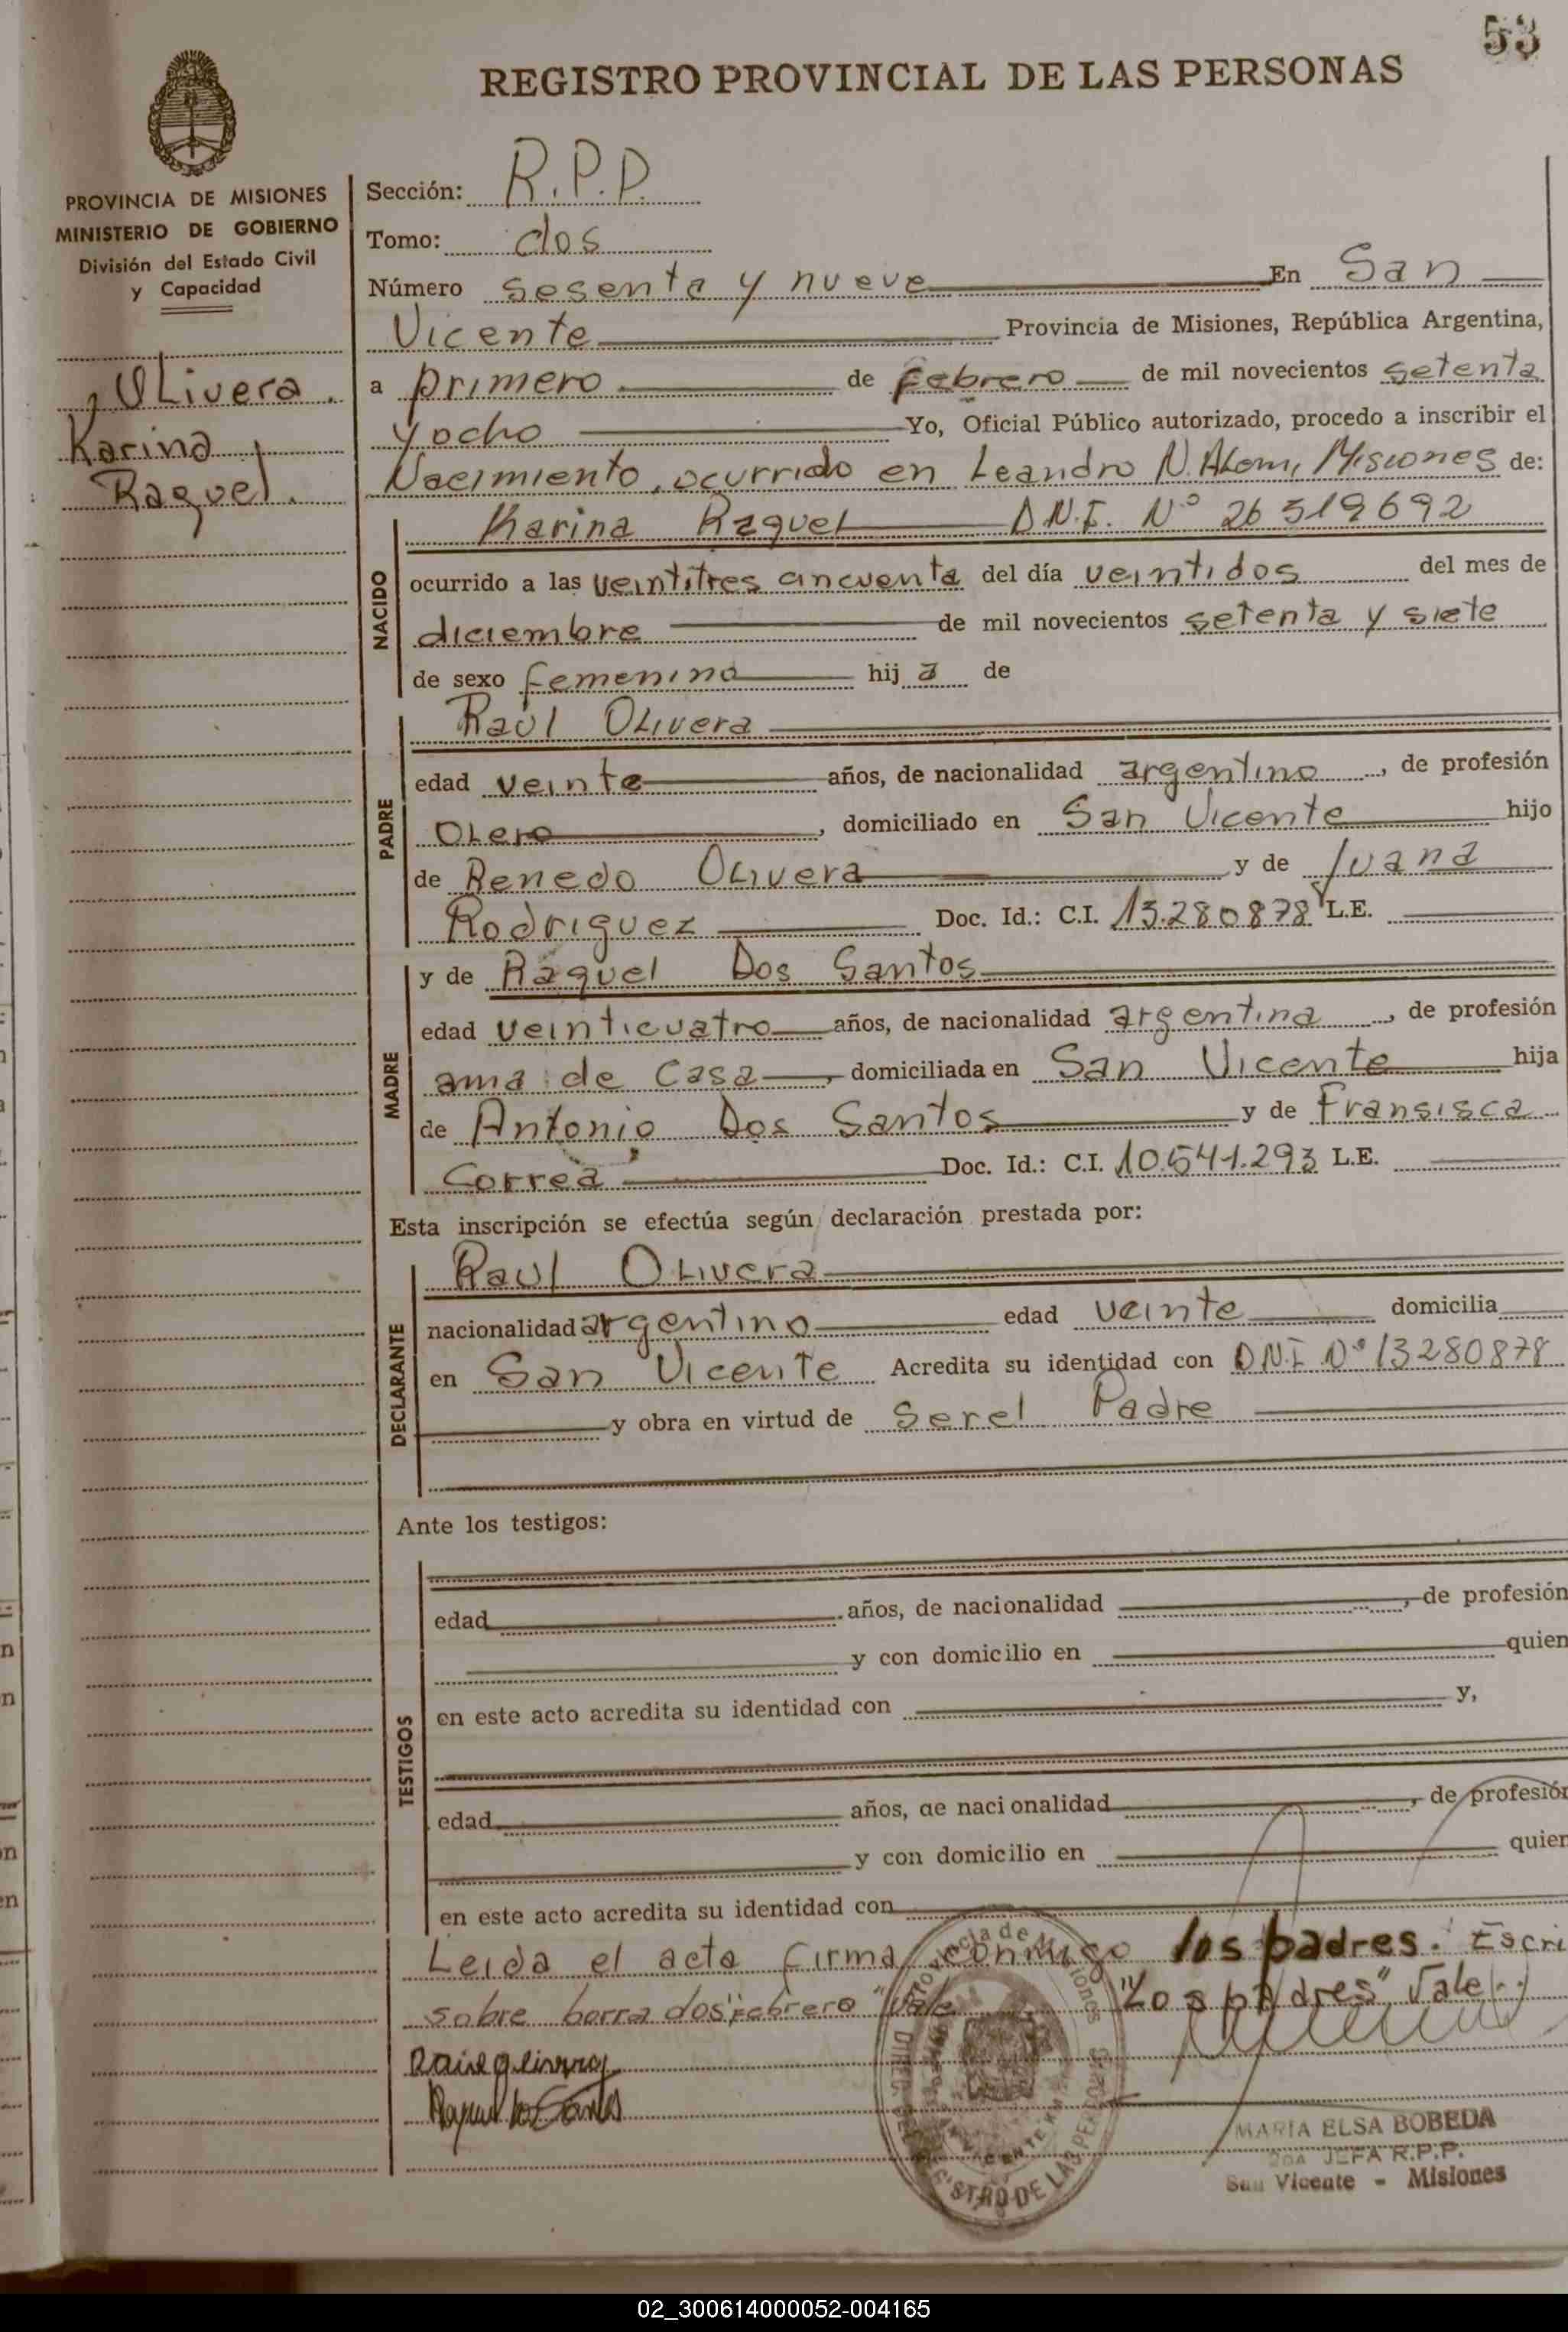 53
REGISTRO PROVINCIAL DE LAS PERSONAS
PROVINCIA DE MISIONES
MINISTERIO DE GOBIERNO
División del Estado Civil
y Capacidad
Olivera.
Karina
Raquel.
Sección: R.P.P.
Tomo: dos
Número sesenta y nueve En San
Vicente Provincia de Misiones, República Argentina,
a primero de febrero de mil novecientos setenta
y ocho Yo, Oficial Público autorizado, procedo a inscribir el
Nacimiento, ocurrido en Leandro N. Alem, Misiones de:
NACIDO
Karina Raquel D.N.I. N° 26 519692
ocurrido a las veintitres cincuenta del día veintidos del mes de
diciembre de mil novecientos setenta y siete
de sexo femenino hija de
PADRE
Raúl Olivera
edad veinte años, de nacionalidad argentino, de profesión
Olero, domiciliado en San Vicente hijo
de Benedo Olivera y de Juana
Rodriguez Doc. Id.: C.I. 13.280878 L.E.
MADRE
y de Raquel Dos Santos
edad veinticuatro años, de nacionalidad argentina, de profesión
ama de casa, domiciliada en San Vicente hija
de Antonio Dos Santos y de Fransisca
Correa Doc. Id.: C.I. 10.541.293 L.E.
Esta inscripción se efectúa según declaración prestada por:
DECLARANTE
Raul Olivera
nacionalidad argentino edad veinte domicilia
en San Vicente Acredita su identidad con D.N.I N° 13280878
y obra en virtud de Ser el Padre
Ante los testigos:
TESTIGOS
edad años, de nacionalidad , de profesión
y con domicilio en quien
en este acto acredita su identidad con y,
edad años, de nacionalidad , de profesión
y con domicilio en quien
en este acto acredita su identidad con
Leida el acta firma conmigo los padres. Escri
sobre borrados "Febrero" Vale "Los padres" Vale
Raquel Dos Santos
MARIA ELSA BOBEDA
2DA JEFA R.P.P.
San Vicente - Misiones
02_300614000052-004165